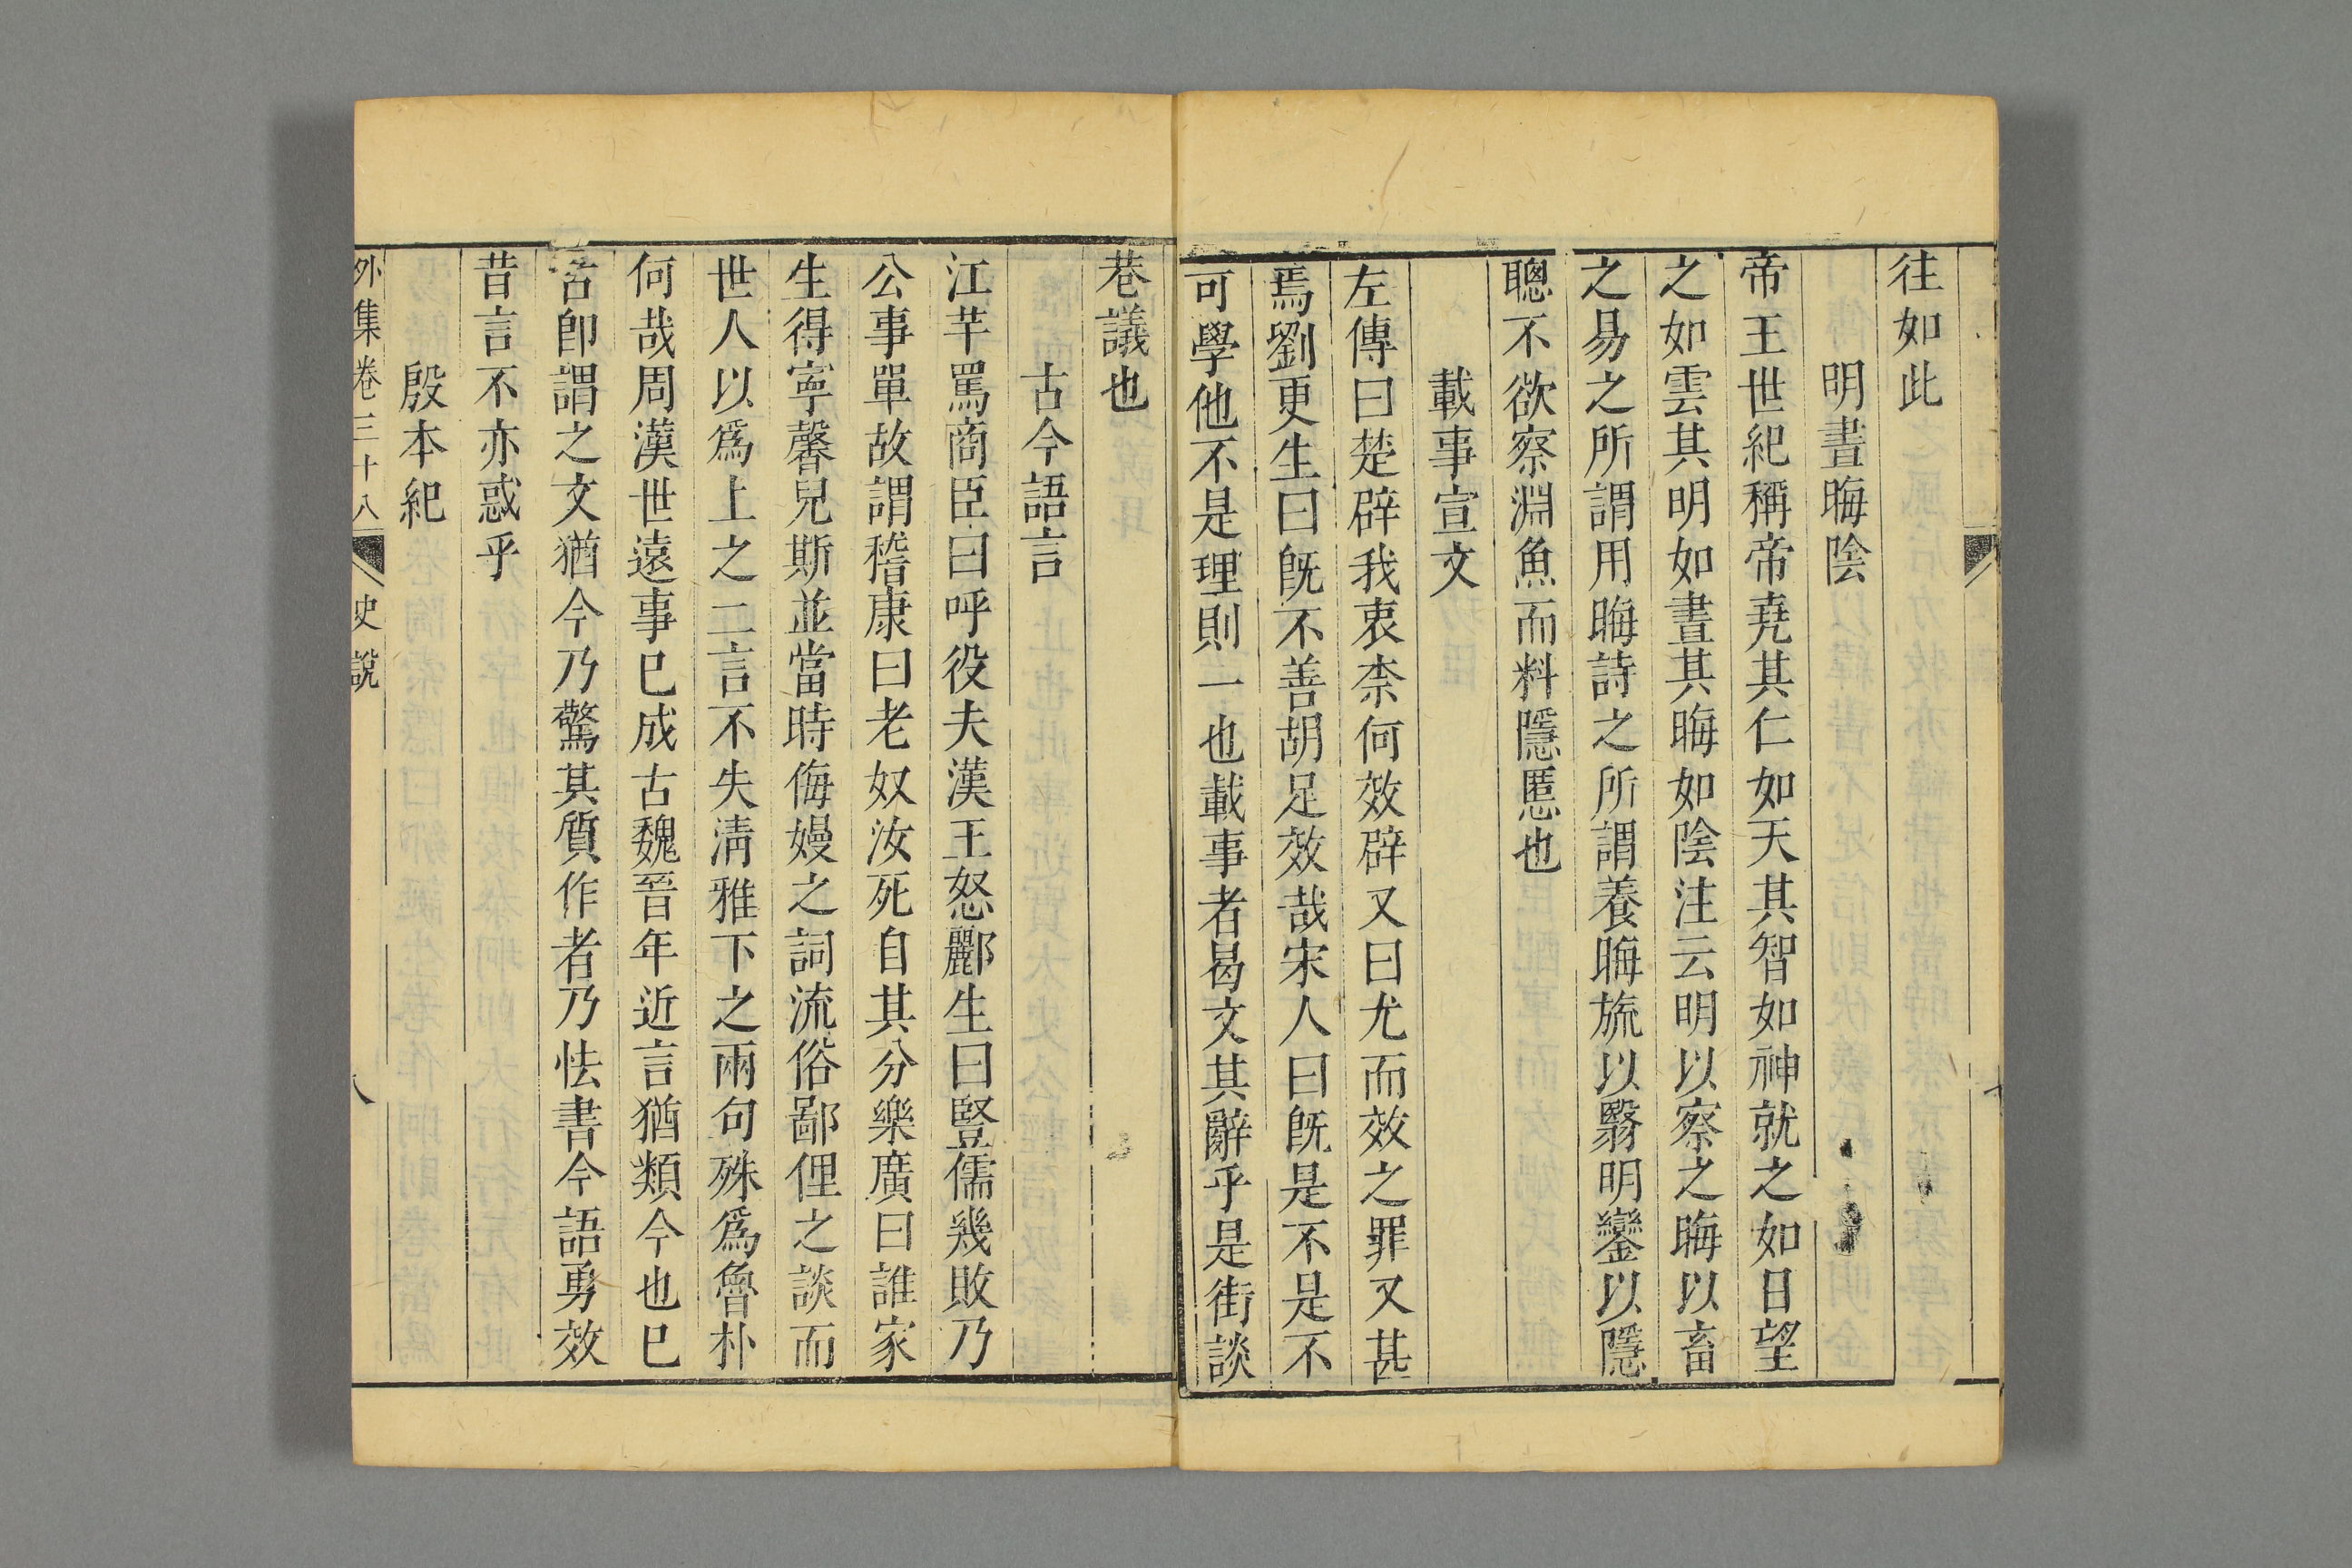 往如此
明晝晦陰
帝王世紀稱帝堯其仁如天其智如神就之如日望
之如雲其明如晝其晦如陰注云明以察之晦以畜
之易之所謂用晦詩之所謂養晦旒以翳明鑾以隱
聰不欲察淵魚而料隱慝也
載事宣文
左傳曰楚辟我衷柰何效辟又曰尤而效之罪又甚
焉劉更生曰旣不善胡足效哉宋人曰旣是不是不
可學他不是理則一也載事者曷文其辭乎是街談
巷議也
古今語言
江芊罵商臣曰呼役夫漢王怒酈生曰豎儒幾敗乃
公事單故謂稽康曰老奴汝死自其分樂廣曰誰家
生得寧馨兒斯並當時侮嫚之詞流俗鄙俚之談而
世人以爲上之二言不失淸雅下之兩句殊爲魯朴
何哉周漢世遠事已成古魏晉年近言猶類今也已
古卽謂之文猶今乃驚其質作者乃怯書今語勇效
昔言不亦惑乎
殷本紀
外集卷三十八 史說 八